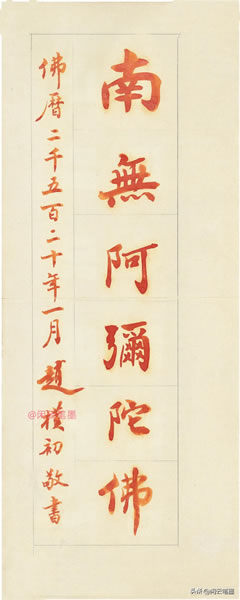 南無阿彌陀佛
佛曆二千五百二十年一月趙樸初敬書
@闲茶言墨
头条@闲茶言墨